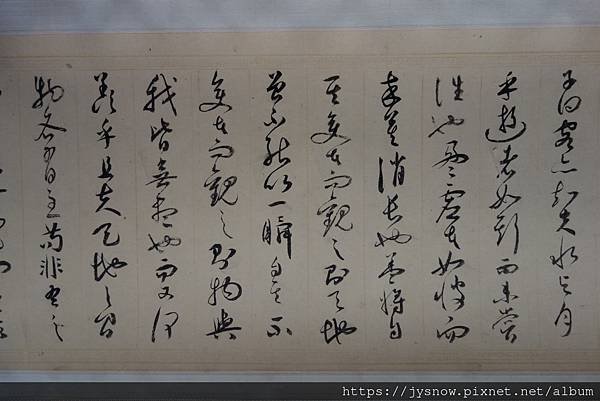 子曰客亦知夫水與月
乎逝者如斯而未嘗
往也盈虛者如彼而
卒莫消長也蓋將自
其變者而觀之則天地
曾不能以一瞬自其不
變者而觀之則物與
我皆無盡也而又何
羨乎且夫天地之間
物各有主苟非吾之
https://jysnow.pixnet.net/album